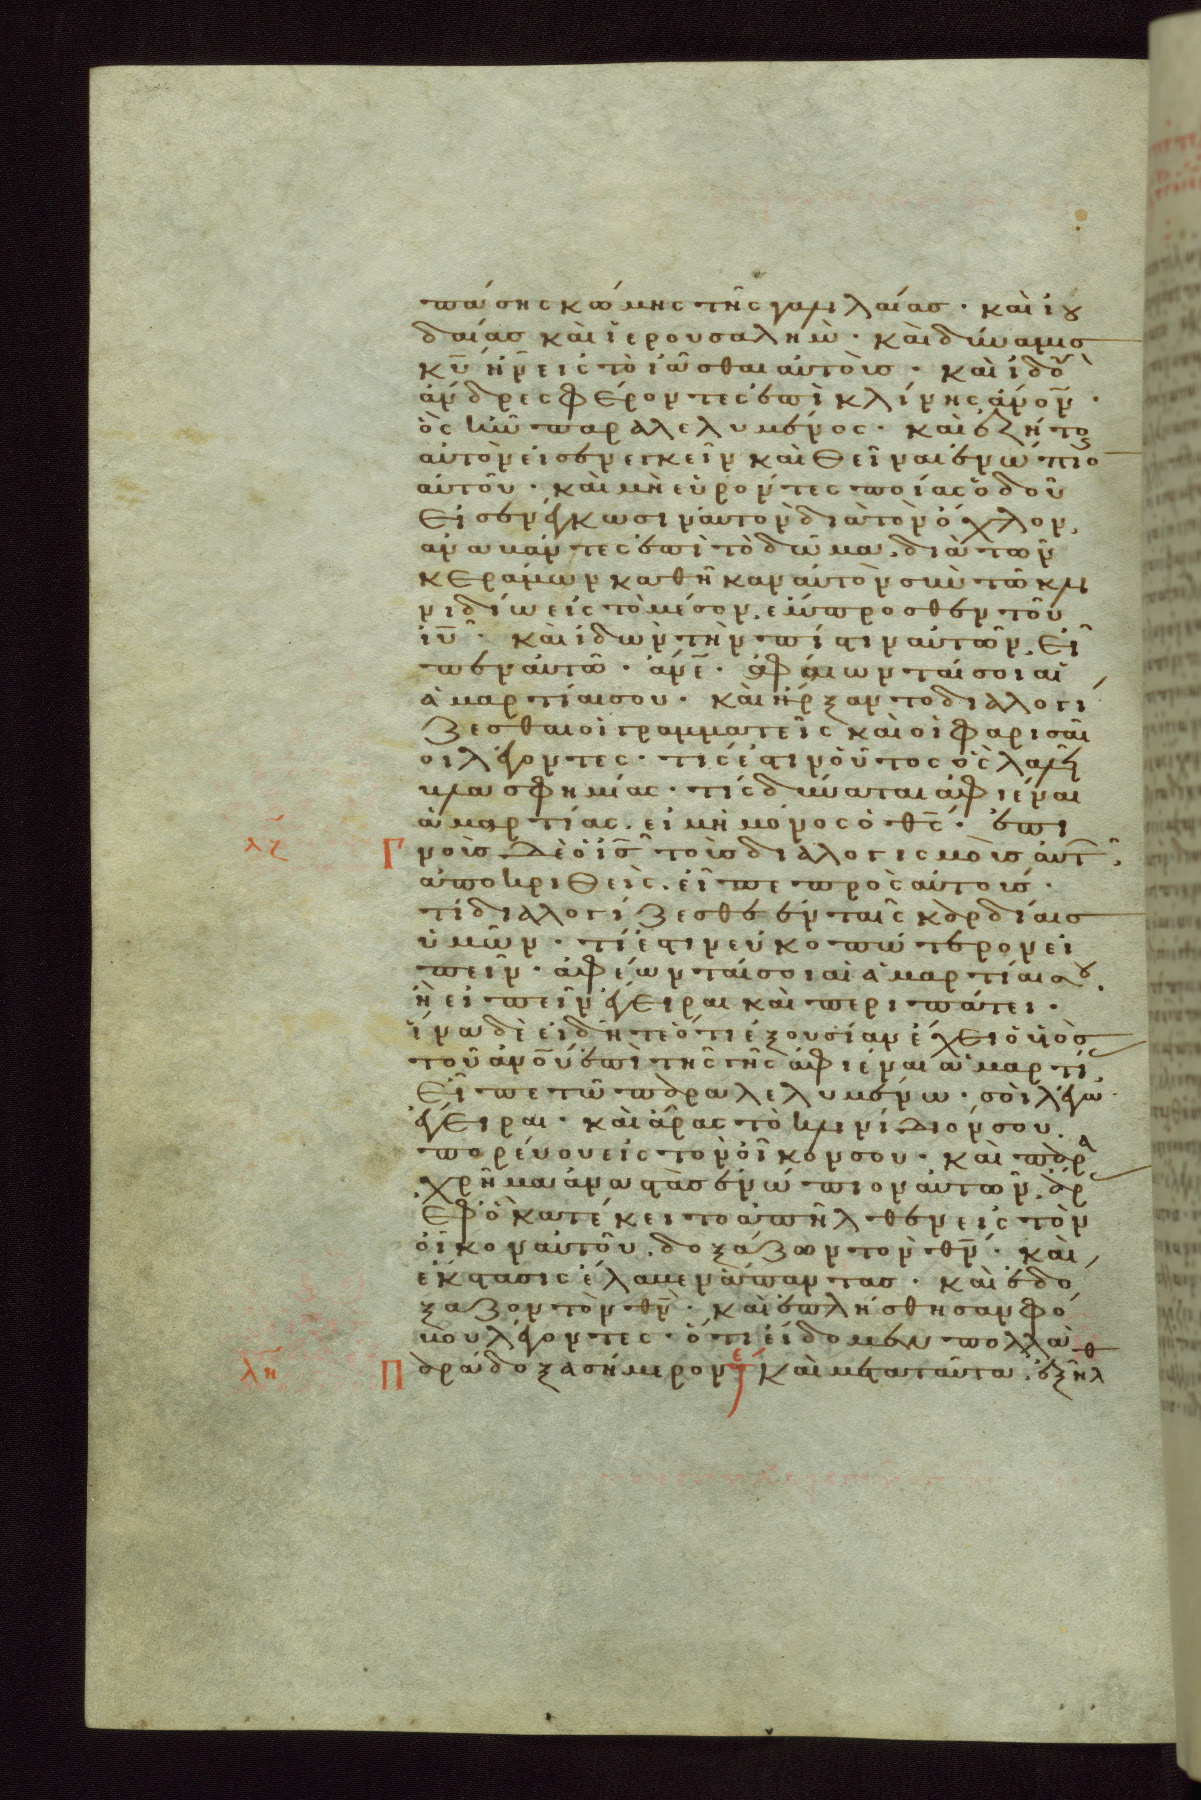 πάσης κώμης τῆς γαλιλαίας · καὶ ἰου
δαίας καὶ ἱερουσαλήμ · καὶ δύναμις
κῡ ἦν εἰς τὸ ἰᾶσθαι αὐτούς · καὶ ἰδοὺ
ἄνδρες φέροντες ἐπὶ κλίνης ἄνο̅ν ·
ὃς ἦν παραλελυμένος · καὶ ἐζήτουν
αὐτὸν εἰσενεγκεῖν καὶ θεῖναι ἐνώπιον
αὐτοῦ · καὶ μὴ εὑρόντες ποίας ὁδοῦ
εἰσενέγκωσιν αὐτὸν διὰ τὸν ὄχλον,
ἀναβάντες ἐπὶ τὸ δῶμα, διὰ τῶν
κεράμων καθῆκαν αὐτὸν σὺν τῶ κλι
νιδίω εἰς τὸ μέσον, ἔμπροσθεν τοῦ
ἰῡ · καὶ ἰδὼν τὴν πίστιν αὐτῶν, εἶ
πεν αὐτῶ · ἄνε̅ · ἀφέωνταί σοι αἱ
ἁμαρτίαι σου · καὶ ἤρξαντο διαλογί
ζεσθαι οἱ γραμματεῖς καὶ οἱ φαρισαῖ
οι λέγοντες · τίς ἐστιν οὗτος ὃς λαλεῖ
βλασφημίας · τίς δύναται ἀφιέναι
ἁμαρτίας, εἰ μὴ μόνος ὁ θς̅ · ἐπι
λζ Γ νοὺς δὲ ὁ ις̅ τοὺς διαλογισμοὺς αὐτῶν,
ἀποκριθεὶς, εἶπε πρὸς αὐτούς ·
τί διαλογίζεσθε ἐν ταῖς καρδίαις
ὑμῶν · τί ἐστιν εὐκοπώτερον εἰ
πεῖν · ἀφέωνταί σοι αἱ ἁμαρτίαι σου,
ἢ εἰπεῖν ἔγειραι καὶ περιπάτει ·
ἵνα δὲ εἰδῆτε ὅτι ἐξουσίαν ἔχει ὁ υἱὸς
τοῦ ἀνο̅υ ἐπὶ τῆς γῆς ἀφιέναι ἁμαρτί
εἶπε τῶ παραλελυμένω · σοὶ λέγω ·
ἔγειραι · καὶ ἄρας τὸ κλινίδιόν σου,
πορεύου εἰς τὸν οἶκόν σου · καὶ παρα
χρῆμα ἀναστὰς ἐνώπιον αὐτῶν, ἄρ
ἐφ ὃ κατέκειτο ἀπῆλθεν εἰς τὸν
οἶκον αὐτοῦ, δοξάζων τὸν θν̅ · καὶ
ἔκστασις ἔλαβεν ἅπαντας · καὶ ἐδό
ξαζον τὸν θν̅ · καὶ ἐπλήσθησαν φό
βου λέγοντες · ὅτι εἴδομεν πολλὰ
λη Π αράδοξα σήμερον καὶ μετὰ ταῦτα, ἐξῆλθ